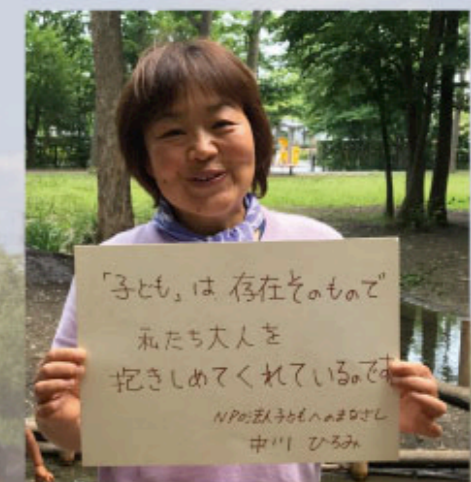 「子ども」は 存在そのもので
私たち大人を
抱きしめてくれているのです
NPO法人子どもへのまなざし
中川 ひろみ